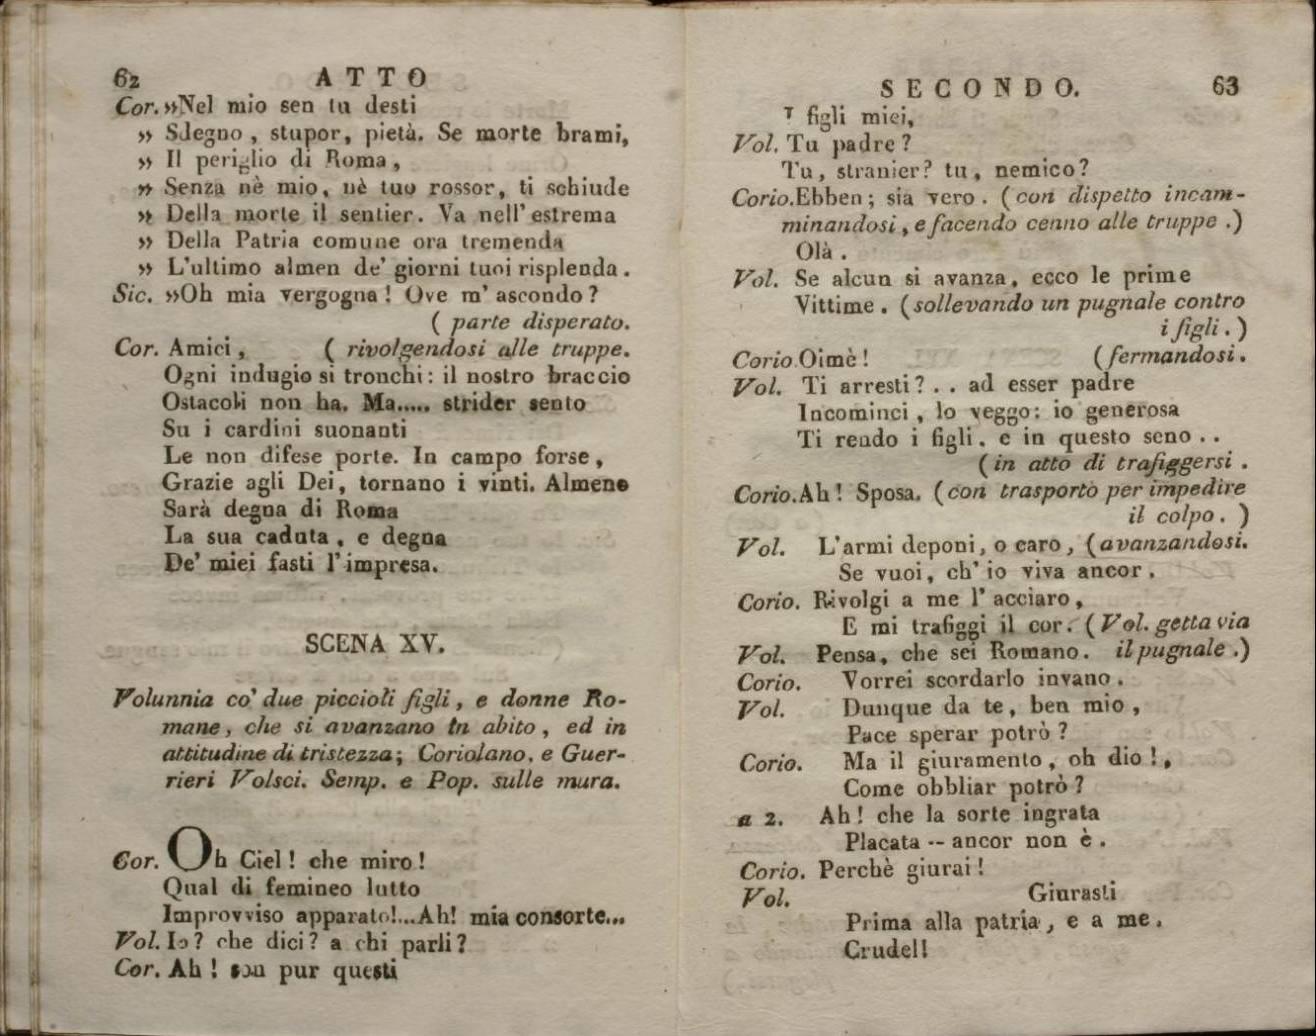 62 ATTO
Cor. »Nel mio sen tu desti
» Sdegno, stupor, pietà. Se morte brami,
» Il periglio di Roma,
» Senza nè mio, nè tuo rossor, ti schiude
» Della morte il sentier. Va nell' estrema
» Della Patria comune ora tremenda
» L'ultimo almen de' giorni tuoi risplenda.
Sic. »Oh mia vergogna! Ove m' ascondo?
( parte disperato.
Cor. Amici, ( rivolgendosi alle truppe.
Ogni indugio si tronchi: il nostro braccio
Ostacoli non ha. Ma..... strider sento
Su i cardini suonanti
Le non difese porte. In campo forse,
Grazie agli Dei, tornano i vinti. Almeno
Sarà degna di Roma
La sua caduta, e degna
De' miei fasti l' impresa.
SCENA XV.
Volunnia co' due piccioli figli, e donne Ro-
mane, che si avanzano in abito, ed in
attitudine di tristezza; Coriolano, e Guer-
rieri Volsci. Semp. e Pop. sulle mura.
Cor. Oh Ciel! che miro!
Qual di femineo lutto
Improvviso apparato!...Ah! mia consorte...
Vol. Io? che dici? a chi parli?
Cor. Ah! son pur questi
SECONDO. 63
I figli miei,
Vol. Tu padre?
Tu, stranier? tu, nemico?
Corio. Ebben; sia vero. (con dispetto incam-
minandosi, e facendo cenno alle truppe.)
Olà.
Vol. Se alcun si avanza, ecco le prime
Vittime. (sollevando un pugnale contro
i figli.)
Corio. Oimè! (fermandosi.
Vol. Ti arresti? . . ad esser padre
Incominci, lo veggo: io generosa
Ti rendo i figli, e in questo seno . .
(in atto di trafiggersi.
Corio. Ah! Sposa. (con trasporto per impedire
il colpo.)
Vol. L'armi deponi, o caro, (avanzandosi.
Se vuoi, ch' io viva ancor.
Corio. Rivolgi a me l' acciaro,
E mi trafiggi il cor. (Vol. getta via
Vol. Pensa, che sei Romano. il pugnale.)
Corio. Vorrei scordarlo invano.
Vol. Dunque da te, ben mio,
Pace sperar potrò?
Corio. Ma il giuramento, oh dio!,
Come obbliar potrò?
a 2. Ah! che la sorte ingrata
Placata -- ancor non è.
Corio. Perchè giurai!
Vol. Giurasti
Prima alla patria, e a me.
Crudel!